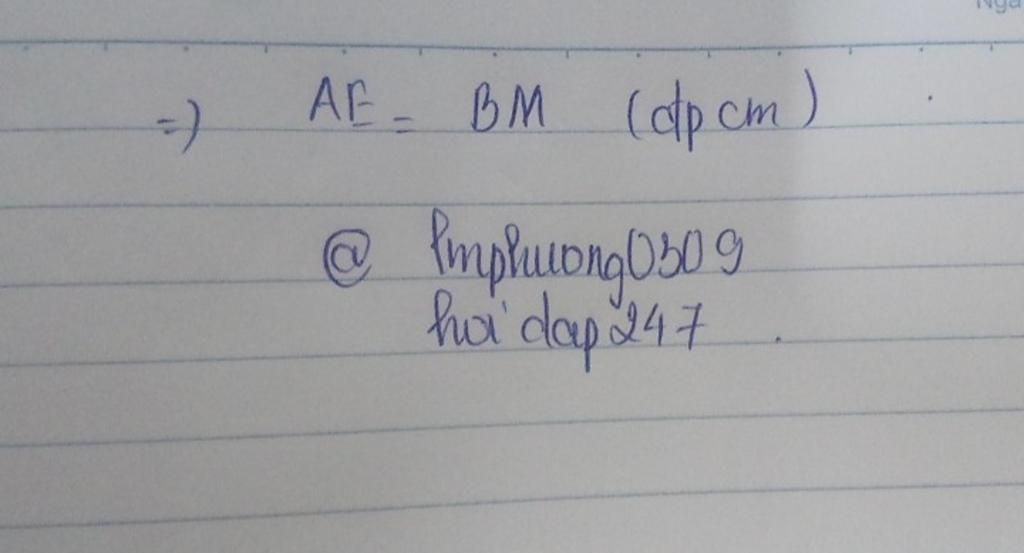 =) AE = BM (đpcm)
@ lmphuong0309
hoidap247